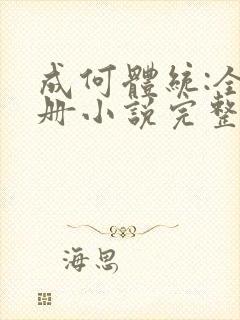 成何體統:全
冊小說完整
海思